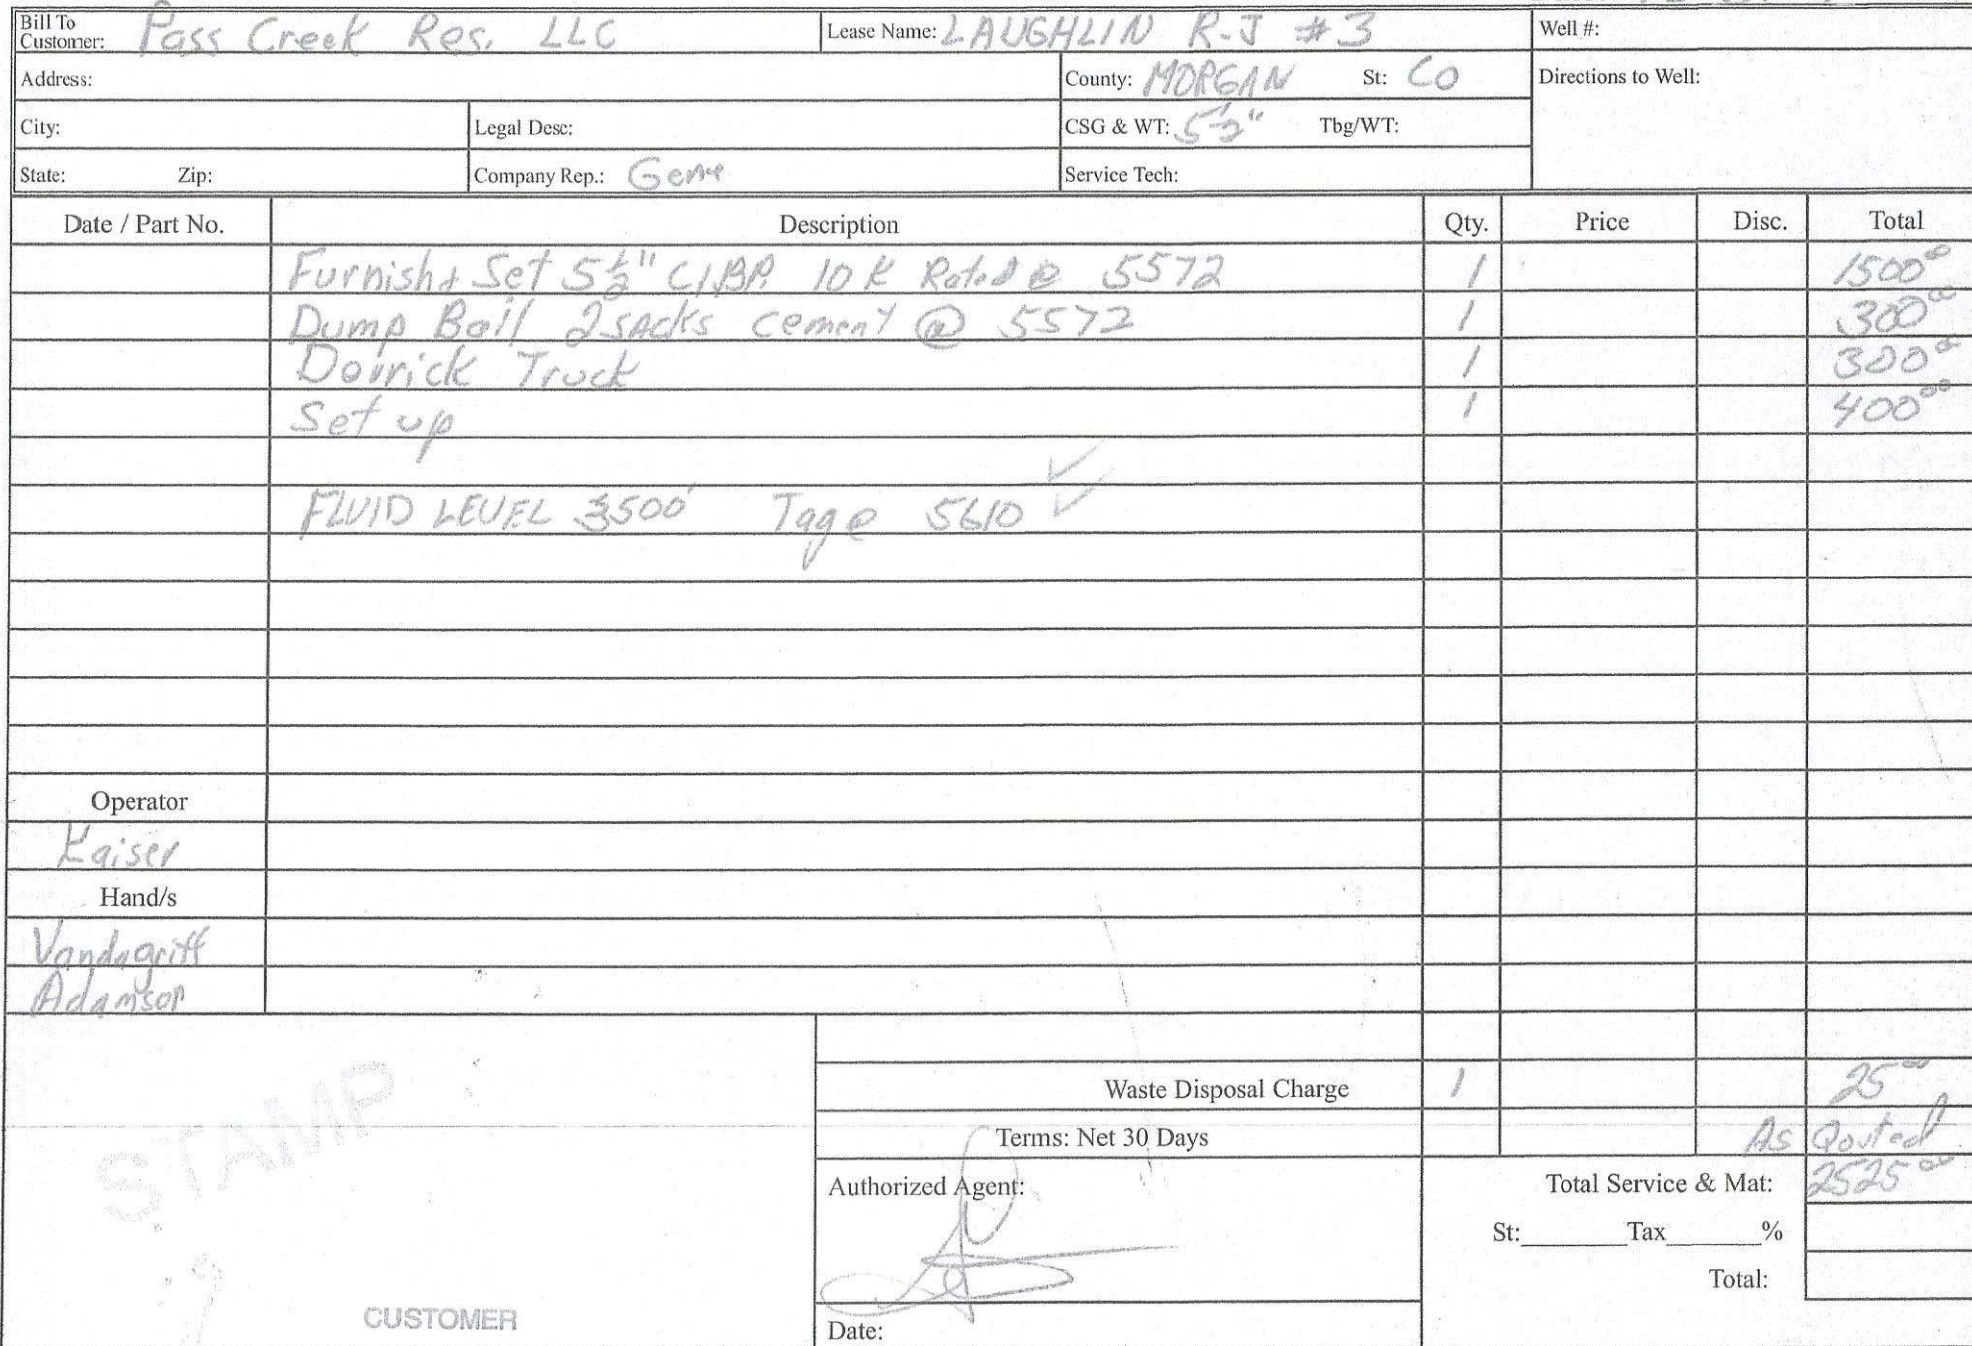 Bill To Customer: Pass Creek Res. LLC Lease Name: LAUGHLIN R-J #3 Well #:
Address: County: MORGAN St: CO Directions to Well:
City: Legal Desc: CSG & WT: 5 1/2" Tbg/WT:
State: Zip: Company Rep.: Gene Service Tech:
Date / Part No. Description Qty. Price Disc. Total
Furnish + Set 5 1/2" CIBP 10 K Rated @ 5572 1 1500 00
Dump Bail 2 SAcks cement @ 5572 1 300 00
Derrick Truck 1 300 00
Set up 1 400 00
FLUID LEVEL 3500' Tag @ 5610
Operator
Kaiser
Hand/s
Vandagriff
Adamson
Waste Disposal Charge 1 25 00
Terms: Net 30 Days As Qouted
Authorized Agent: Total Service & Mat: 2525 00
St:________Tax_______%
Total:
STAMP
CUSTOMER
Date: